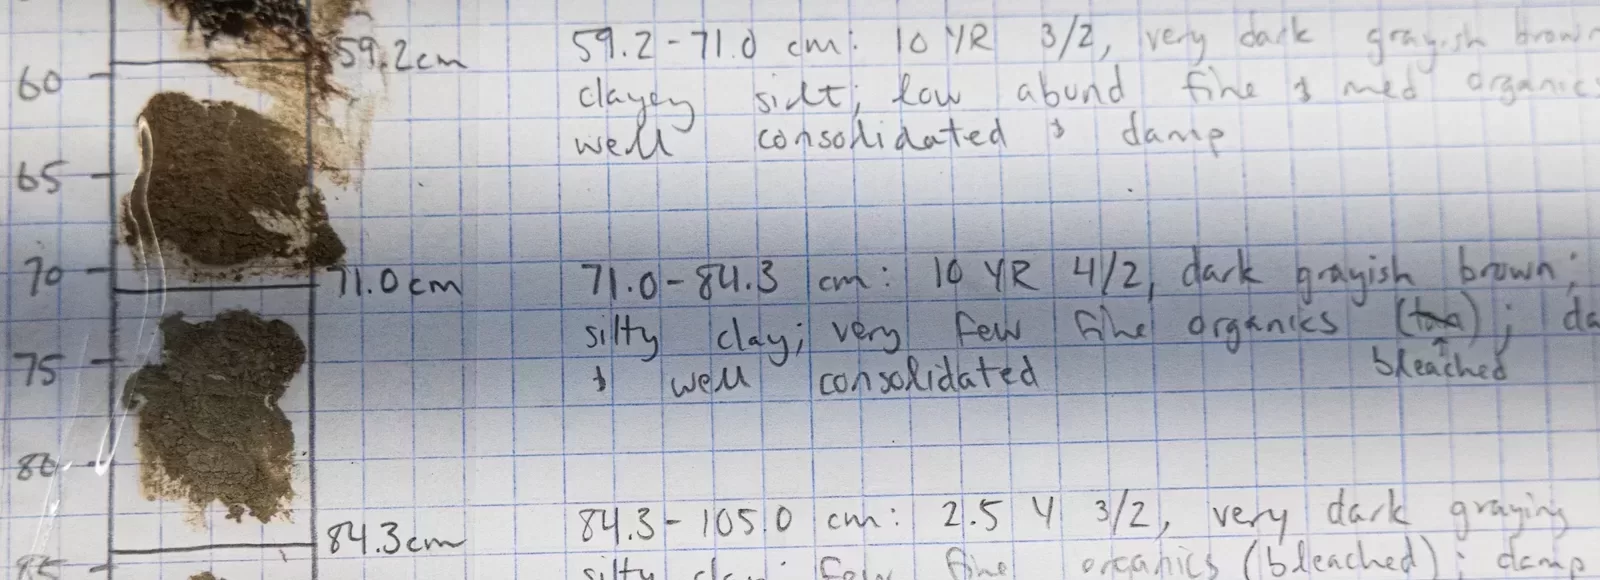 59.2cm
59.2-71.0 cm: 10 YR 3/2, very dark grayish brown
60
clayey silt; low abund fine & med organics
well consolidated & damp
65
70
71.0cm
71.0-84.3 cm: 10 YR 4/2, dark grayish brown;
silty clay; very few fine organics ( ); da
75
& well consolidated
bleached
80
84.3-105.0 cm: 2.5 Y 3/2, very dark graying
84.3cm
85
silty clay; few fine organics (bleached); damp